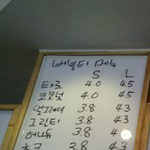 버블티 메뉴
S L
타로 4.0 4.5
코코넛 4.0 4.5
얼그레이 3.8 4.3
그린티 3.8 4.3
허니듀 3.8 4
3.8